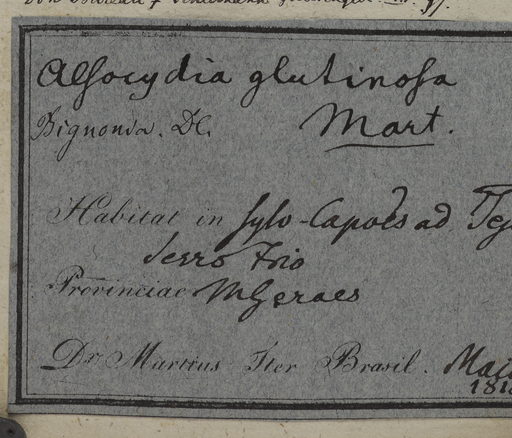 Alsocydia glutinosa
Bignonia. DC.
Mart.
Habitat in sylv-Capoës ad
Serro Frio
Provinciae MGeraes
Dr. Martius Iter Brasil. Maio
181